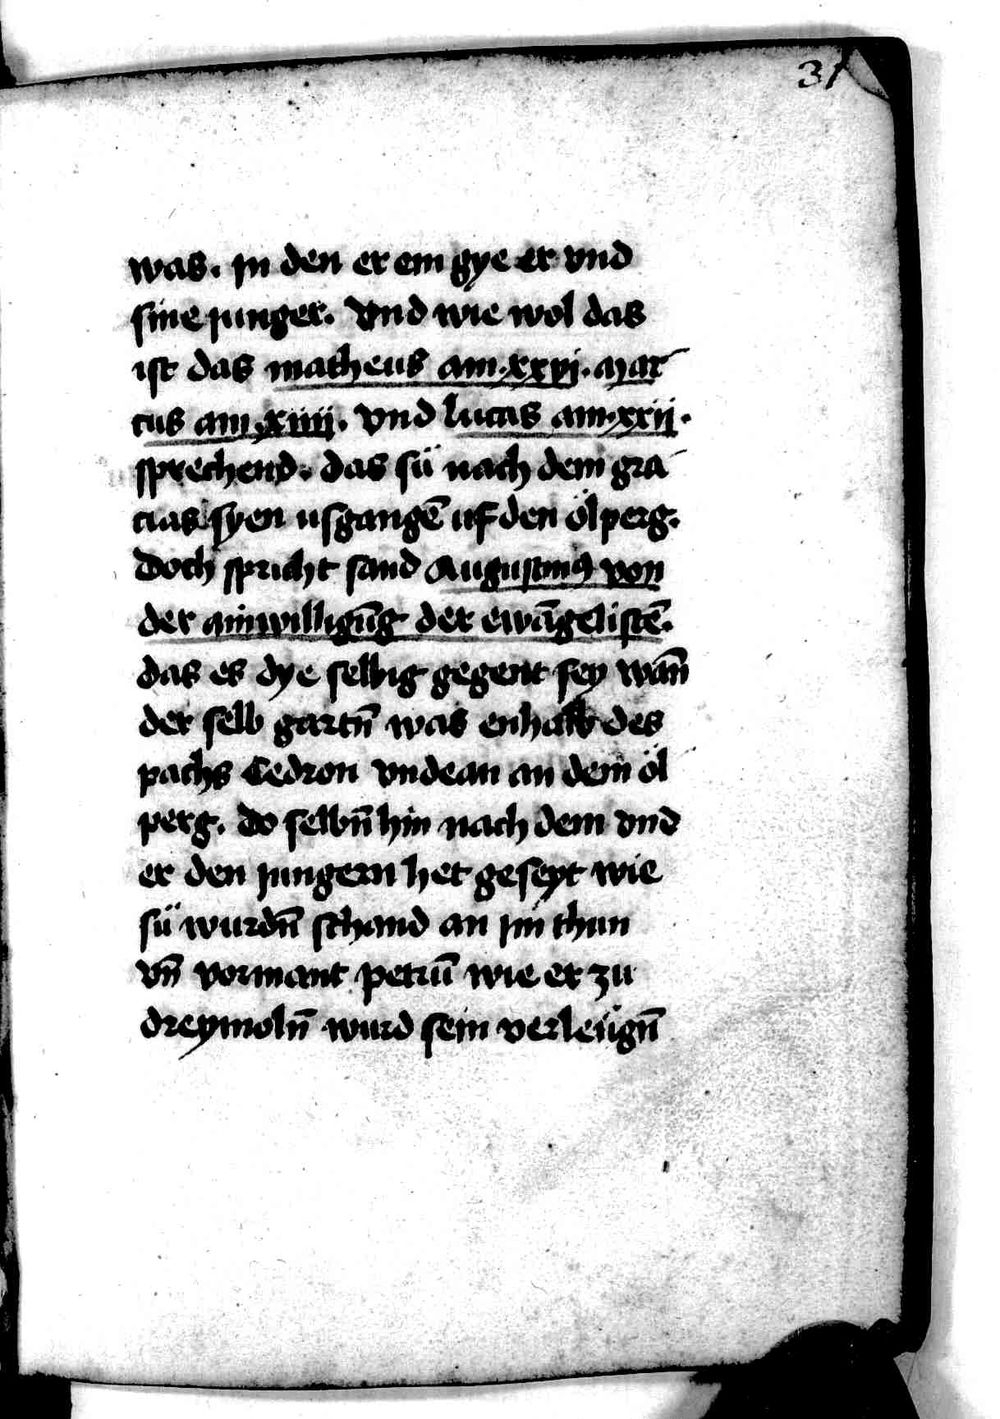 31
was. in den er ein gye er vnd
sine junger. Vnd wie wol das
ist das matheus am .xxvi. mar
cus am .xiiii. vnd lucas am .xxii.
sprechend. das sü nach dem gra
cias syen usgangē uf den ölperg.
Doch spricht sand Augustinꝰ von
der ainwilligūg der ewāgelistē.
das es dye selbig gegent sey wan̄
der selb gartn̄ was enhalb des
pachs Cedron vndean an dem öl
perg. do selbn̄ hin nach dem vnd
er den jungern het geseyt wie
sü wurdn̄ schand an im thun
vn̄ vormant petrū wie er zu
dreymoln̄ wurd sein verleügn̄